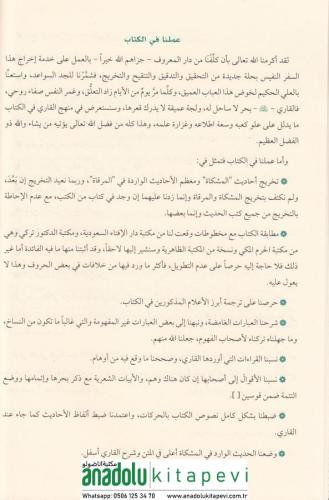 عملنا في الكتاب
لقد أكرمنا الله تعالى بأن كلَّفَنَا من دار المعروف - جزاهم الله خيراً - بالعمل على خدمة إخراج هذا
السفر النفيس بحلة جديدة من التحقيق والتدقيق والتنقيح والتخريج، فشمَّرْنا للجد السواعد، واستعنَّا
بالعلي الحكيم لخوض هذا العباب العميق، وكلَّما مَرَّ يومٌ من الأيام زاد التعلُّق، وغمر النفس صفاء روحي،
فالقاري - - بحر لا ساحل له، ولجة عميقة لا يدرك قعرها، وسنستعرض في منهج القاري في الكتاب
ما يدلل على علو كعبه وسعة اطلاعه وغزارة علمه، وهذا كله من فضل الله تعالى يؤتيه من يشاء والله ذو
الفضل العظيم.
وأما عملنا في الكتاب فتمثل في:
تخريج أحاديث "المشكاة" ومعظم الأحاديث الواردة في "المرقاة"، وربما نعيد التخريج إن بَعُدَ،
ولم نكتفِ بتخريج المشكاة والمرقاة وإنما زدنا عليهما إن وجد في كتاب من الكتب، مع عدم الإحاطة
بالتخريج من جميع كتب الحديث وإنما بعضها.
مطابقة الكتاب مع مخطوطات وقعت لنا من مكتبة دار الإفتاء السعودية، ومكتبة الدكتور تركي وهي
من مكتبة الحرم المكي ونسخة من المكتبة الظاهرية وسنشير إليها لاحقاً، وقد أثبتنا منها ما فيه الفائدة أما غير
ذلك فلا حاجة إليه حرصاً على عدم التطويل، فأكثر ما ورد فيها من خلافات في بعض الحروف وهذا لا
يعول عليه.
حرصنا على ترجمة أبرز الأعلام المذكورين في الكتاب.
شرحنا العبارات الغامضة، ونبهنا إلى بعض العبارات غير المفهومة والتي غالباً ما تكون من النساخ،
وما جهلناه تركناه لأصحاب الفهوم، جعلنا الله منهم.
نسبنا القراءات التي أوردها القاري، وصححنا ما وقع فيه من أوهام.
نسبنا الأقوال إلى أصحابها إن كان هناك وهم، والأبيات الشعرية مع ذكر بحرها وإتمامها ووضع
التتمة ضمن قوسين [ ].
ضبطنا بشكل كامل نصوص الكتاب بالحركات، واعتمدنا ضبط ألفاظ الأحاديث كما جاء عند
القاري.
وضعنا الحديث الوارد في المشكاة أعلى في المتن وشرح القاري أسفل.
مكتبة اناضولو
anadolu kitapevi
Whatsapp: 0506 125 34 70 www.anadolukitapevi.com